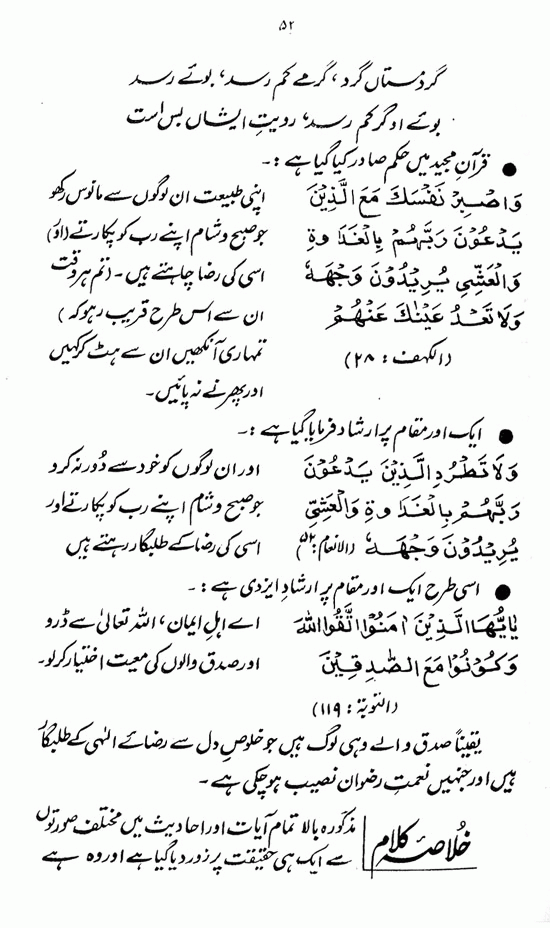 ۵۲
گردِ مستاں گرد، گرمے کم رسد، بوئے رسد
بوئے او گر کم رسد، رویتِ ایشاں بس است
● قرآنِ مجید میں حکم صادر کیا گیا ہے :۔
وَاصْبِرْ نَفْسَكَ مَعَ الَّذِيْنَ
يَدْعُوْنَ رَبَّهُمْ بِالْغَدٰوةِ
وَالْعَشِيِّ يُرِيْدُوْنَ وَجْهَهٗ
وَلَا تَعْدُ عَيْنٰكَ عَنْهُمْ
(الکہف : ۲۸)
اپنی طبیعت ان لوگوں سے مانوس رکھو
جو صبح و شام اپنے رب کو پکارتے (اور)
اسی کی رضا چاہتے ہیں۔ (تم ہر وقت
ان سے اس طرح قریب رہو کہ)
تمہاری آنکھیں ان سے ہٹ کر کہیں
اور پھرنے نہ پائیں۔
● ایک اور مقام پر ارشاد فرمایا گیا ہے :۔
وَلَا تَطْرُدِ الَّذِيْنَ يَدْعُوْنَ
رَبَّهُمْ بِالْغَدٰوةِ وَالْعَشِيِّ
يُرِيْدُوْنَ وَجْهَهٗ (الانعام : ۵۲)
اور ان لوگوں کو خود سے دُور نہ کرو
جو صبح و شام اپنے رب کو پکارتے اور
اسی کی رضا کے طلبگار رہتے ہیں
● اسی طرح ایک اور مقام پر ارشادِ ایزدی ہے :۔
يٰاَيُّهَا الَّذِيْنَ اٰمَنُوْا اتَّقُوا اللّٰهَ
وَكُوْنُوْا مَعَ الصّٰدِقِيْنَ
(التوبۃ : ۱۱۹)
اے اہلِ ایمان، اللہ تعالیٰ سے ڈرو
اور صدق والوں کی معیت اختیار کر لو۔
یقیناً صدق والے وہی لوگ ہیں جو خلوصِ دل سے رضائے الٰہی کے طلبگار
ہیں اور جنہیں نعمتِ رضوان نصیب ہو چکی ہے۔
خُلاصۂ کلام
مذکورہ بالا تمام آیات اور احادیث میں مختلف صورتوں
سے ایک ہی حقیقت پر زور دیا گیا ہے اور وہ ہے